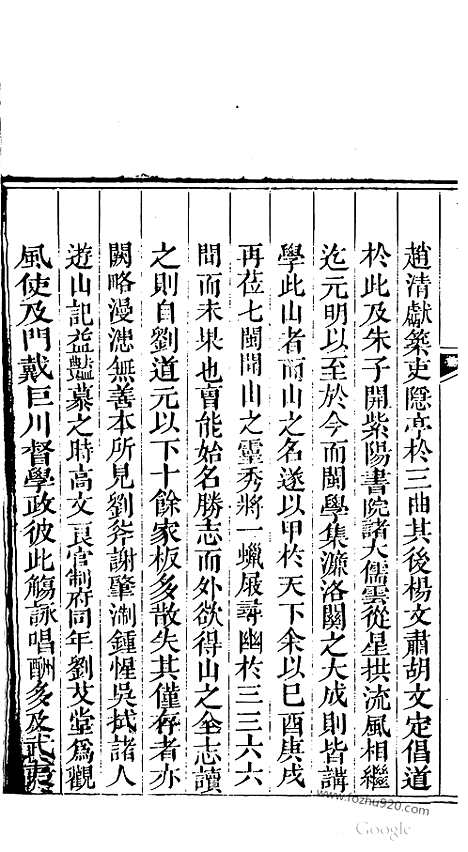 趙清獻築吏隱亭於三曲其後楊文肅胡文定倡道
於此及朱子開紫陽書院諸大儒雲從星拱流風相繼
迄元明以至於今而閩學集濂洛關之大成則皆講
學此山者而山之名遂以甲於天下余以巳酉庚戌
再莅七閩問山之靈秀將一蠟屐尋幽於三三六六
間而未果也曹能始名勝志而外欲得山之全志讀
之則自劉道元以下十餘家板多散失其僅存者亦
闕略漫漶無善本所見劉斧謝肇淛鍾惺吳拭諸人
遊山記益豔慕之時高文良官制府同年劉艾堂爲觀
風使及門戴巨川督學政彼此觴詠唱酬多及武夷
www.fozhu920.com
Google